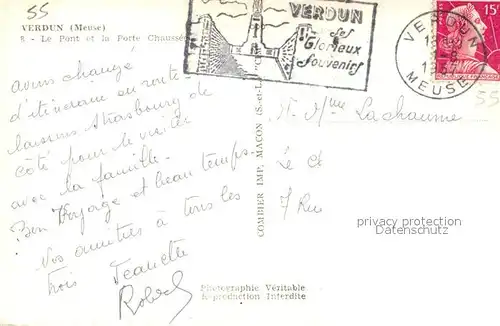 55
VERDUN (Meuse)
8 - Le Pont et la Porte Chaussée
avons changé
d'itinéraire en route
laissons Strasbourg de
côté pour le visiter
avec la famille.
Bon Voyage et beau temps.
Nos amitiés à tous les
trois Jeanette
Robert
COMBIER IMP. MACON (S.-et-L.) "C
VERDUN
Ses
Glorieux
Souvenirs
VERDUN
MEUSE
15F
55
M. Mme Lachaume
Le Ch
7 Rue
privacy protection
www.ak-ansichtskarten.de
Photographie Véritable
Reproduction Interdite